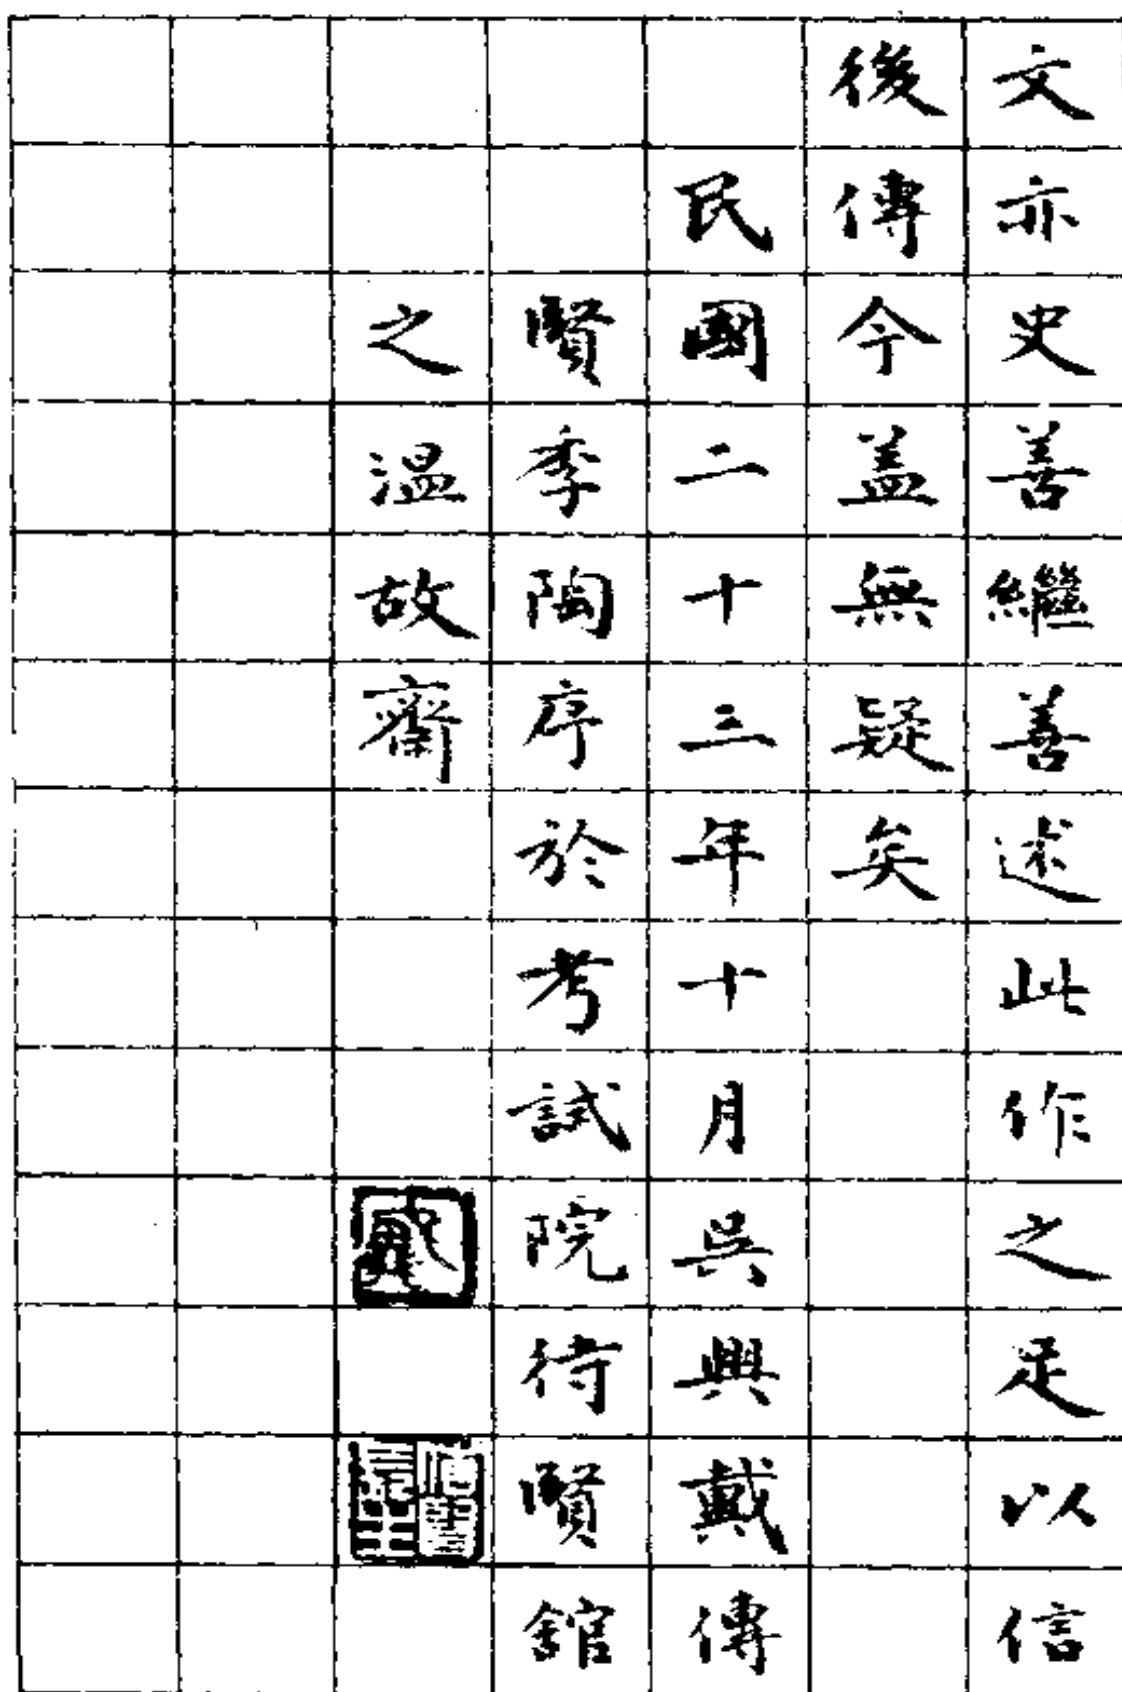 文亦史善繼善述此作之足以信
後傳今蓋無疑矣
民國二十三年十月吳興戴傳
賢季陶序於考試院待賢館
之溫故齋
戴